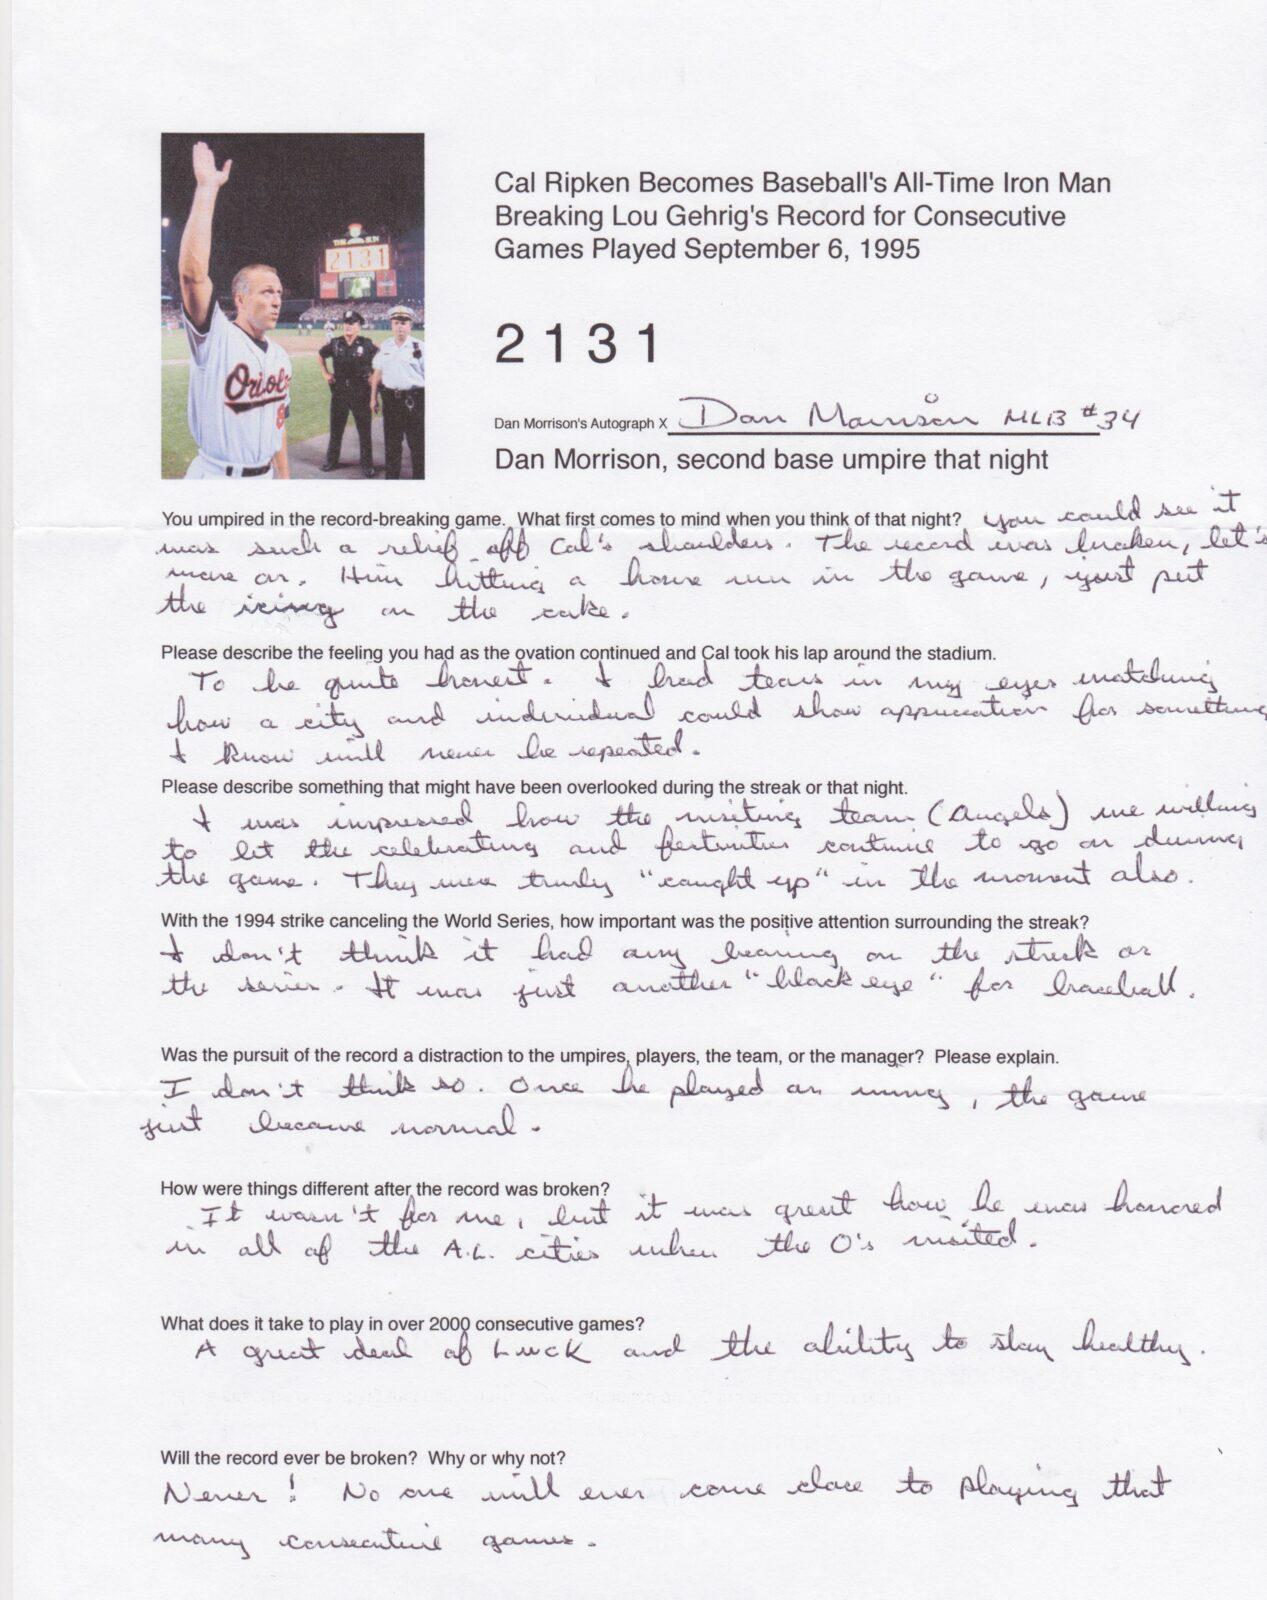 THE SUN
2131
Orioles
8
Cal Ripken Becomes Baseball's All-Time Iron Man
Breaking Lou Gehrig's Record for Consecutive
Games Played September 6, 1995
2131
Dan Morrison's Autograph X Dan Morrison MLB #34
Dan Morrison, second base umpire that night
You umpired in the record-breaking game. What first comes to mind when you think of that night? You could see it
was such a relief off Cal's shoulders. The record was broken, let's
move on. Him hitting a home run in the game, just put
the icing on the cake.
Please describe the feeling you had as the ovation continued and Cal took his lap around the stadium.
To be quite honest. I had tears in my eyes watching
how a city and individual could show appreciation for something
I know will never be repeated.
Please describe something that might have been overlooked during the streak or that night.
I was impressed how the visiting team (Angels) were willing
to let the celebrating and festivities continue to go on during
the game. They were truly "caught up" in the moment also.
With the 1994 strike canceling the World Series, how important was the positive attention surrounding the streak?
I don't think it had any bearing on the streak or
the series. It was just another "black eye" for baseball.
Was the pursuit of the record a distraction to the umpires, players, the team, or the manager? Please explain.
I don't think so. Once he played an inning, the game
just became normal.
How were things different after the record was broken?
It wasn't for me, but it was great how he was honored
in all of the A.L. cities when the O's visited.
What does it take to play in over 2000 consecutive games?
A great deal of Luck and the ability to stay healthy.
Will the record ever be broken? Why or why not?
Never! No one will ever come close to playing that
many consecutive games.